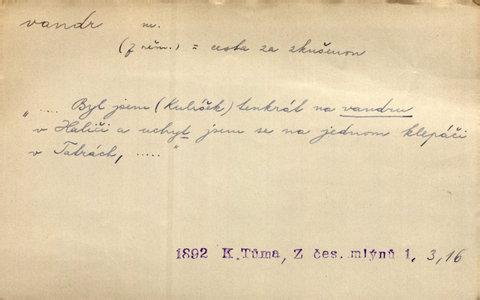 vandr m.
(z něm.) = cesta za zkušenou
"..... Byl jsem (Kulíšek) tenkrát na vandru
v Haliči a uchyt jsem se na jednom klepáči
v Tatrách, ..... "
1892 K.Tůma, Z čes. mlýnů 1, 3,16